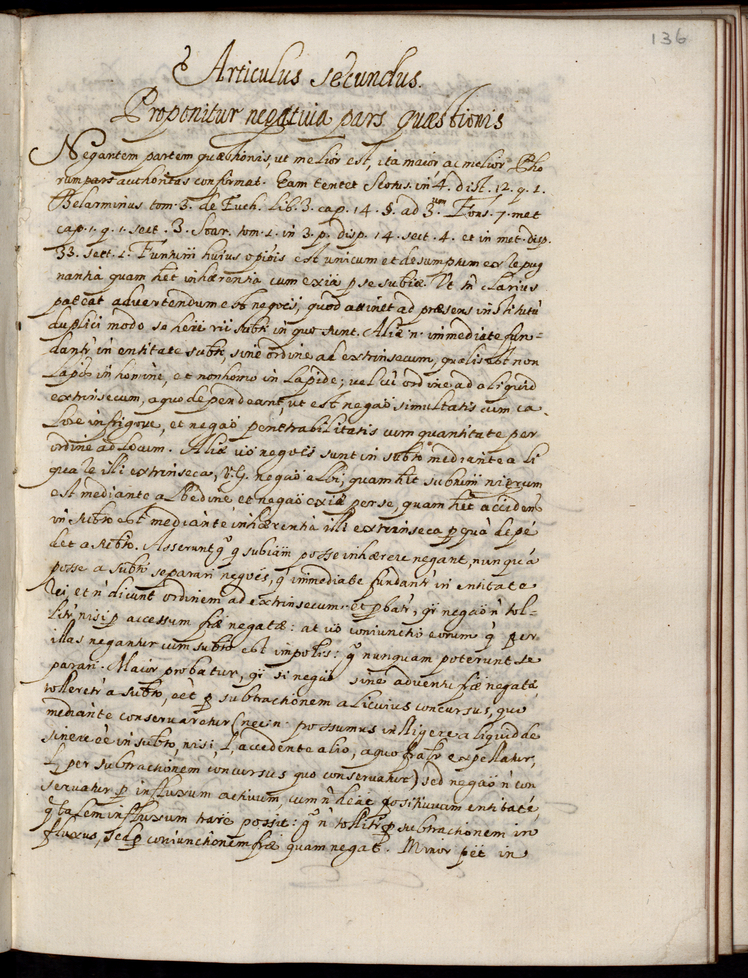 136
Articulus secundus.
Proponitur negativa pars quæstionis
Negantem partem quæstionis, ut melior est, ita maior ac melior Tho
rum pars authoritas confirmat. Eam tenet Scotus in 4. dist. 12. q. 1.
Belarminus tom. 3. de Euch. lib. 3. cap. 14. §. ad 3um Fons. 7. met
cap. 1. q. 1. sect. 3. Soar. tom. 1. in 3. p. disp. 14. sect. 4. et in met. disp.
33. sect. 1. huius est unicum et desumptum ex repug
nantia quam het inhærentia cum exia p se subiæ. Ut in clarius
pateat advertendum est negoes, quod attinet ad præsens institutū
duplici modo se in quo sunt. Aliæ n. immediate fun-
dantr in entitate subti, sine ordine ad extrinsecum, qualis est non
lapis in homine, et nonhomo in lapide; vel cū ordine ad aliquid
extrinsecum, a quo dependeant, ut est negao simultatis cum ca
lore in frigore, et negao penetrabilitatis cum quantitate per
ordine ad locum. Aliæ uo negoes sunt in subto mediante ali
qua re illi extrinseca, V.G. negao albi, quam het subtum nigrum
est mediante albedine et negao exiæ per se, quam het accidens
in subto est mediante inhærentia illi extrinseca p qua depē
det a subto. Asserunt qo q subiam posse inhærere negant, nunquā
posse a subto separari negoes, q immediate fundantr in entitate
rei et n dicunt ordinem ad extrinsecum. et pbatr, qi negao n tol-
litr nisi p accessum fræ negatæ: at uo coniunctio eorum q per
illas negantur cum subto est impolis: qo nunquam poterunt se
parari. Maior probatur, qi si negao sine adventu fræ negatæ
tolleretr a subto, eēt p subtractionem alicuius concursus, quo
mediante conservaretur (nec n. possumus intelligere aliquid de
sinere eē in subto, nisi, l, accedente alio, a quo fratr expellatur,
l, per subtractionem concursus quo conservatur) sed negao n con
servatur p influxum activum cum n heāt positivum entitatē,
q talem influxum trare possit: qo n tollitr p subtractionem in
fluxus, sed p coniunctionem fræ quam negat. Minor pēt in